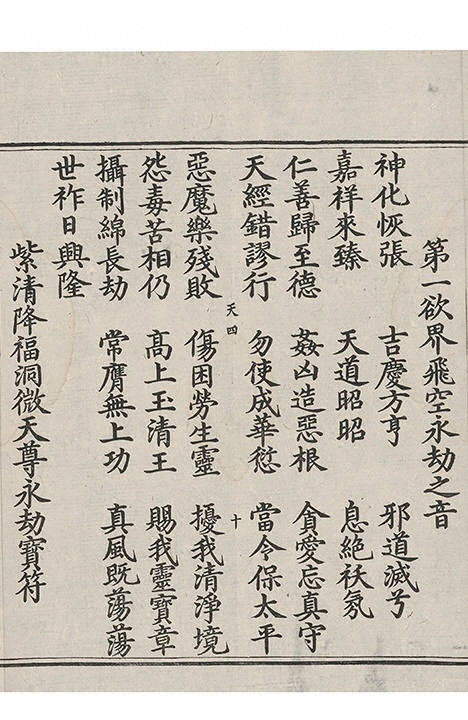 第一欲界飛空永劫之音
神化恢張　吉慶方亨　邪道滅兮
嘉祥來臻　天道昭昭　息絶祅氛
仁善歸至德　姦凶造惡根　貪愛忘真守
天經錯謬行　勿使成華愆　當令保太平
天四　十
惡魔樂殘敗　傷困勞生靈　擾我清淨境
怨毒苦相仍　髙上玉清王　賜我靈寶章
攝制綿長劫　常膺無上功　真風旣蕩蕩
世祚日興隆
紫清降福洞微天尊永劫寶符